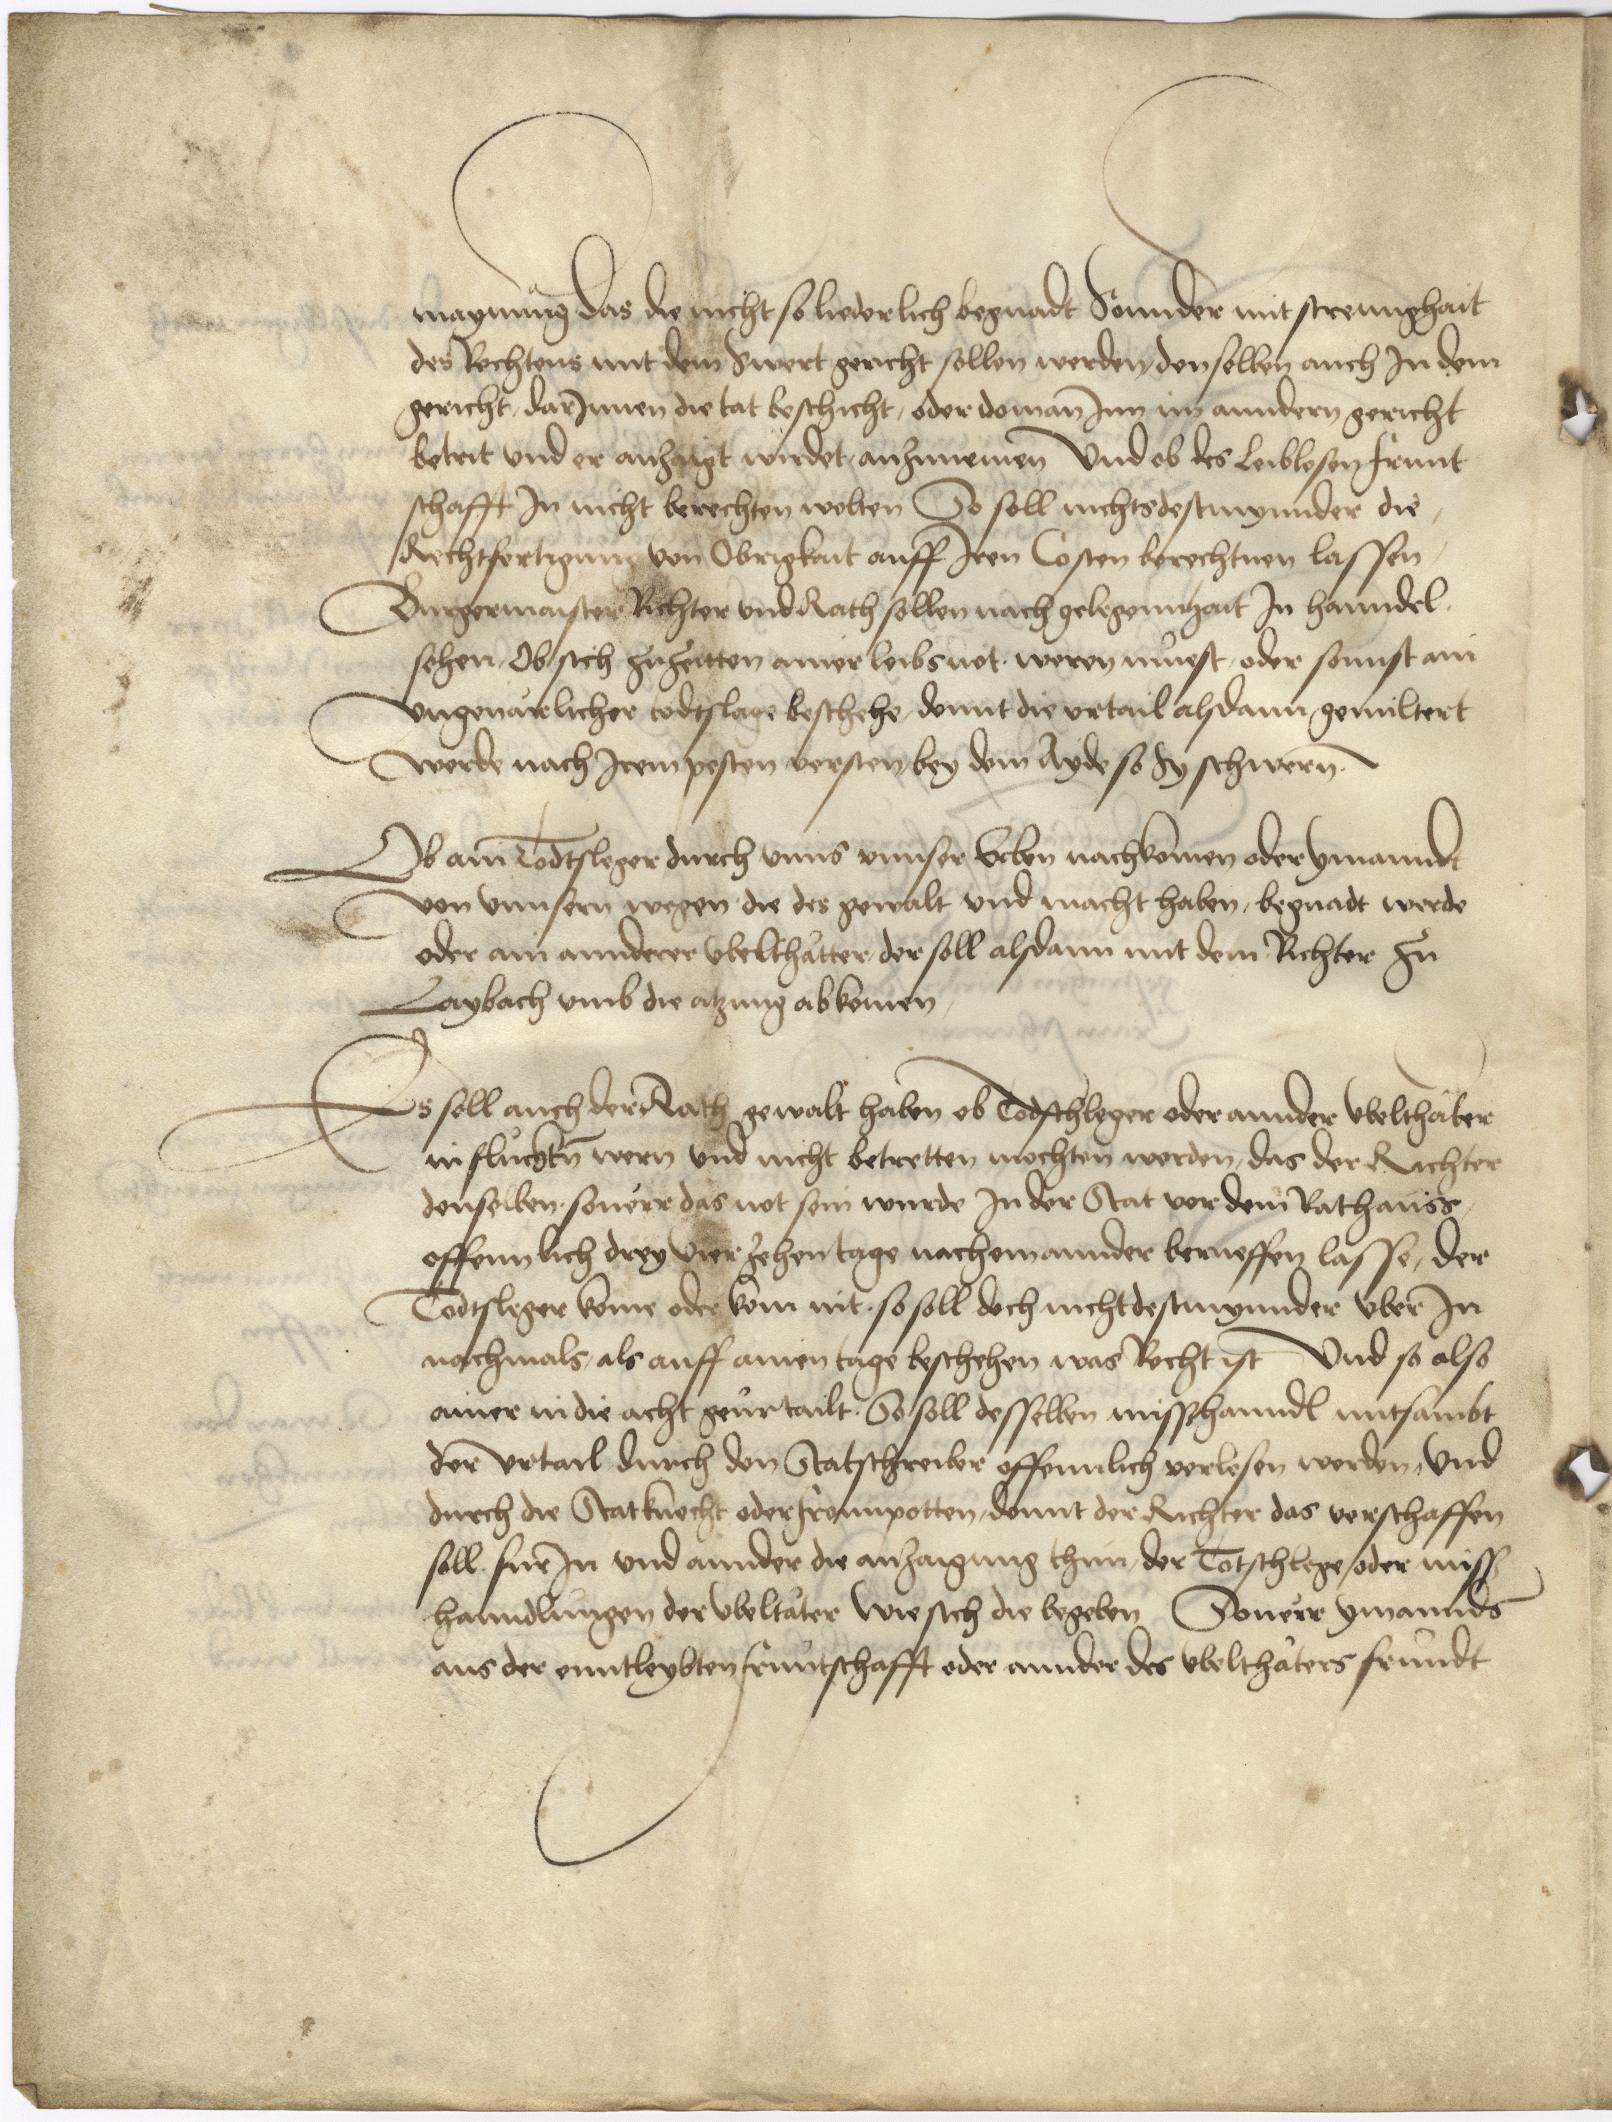 maynung das die nicht so liederlich begnadt Sonnder mit strennghait
des Rechtens mit dem Swert gericht sollen werden, denselben auch In dem
gericht, darInnen die tat beschicht, oder do man Inn im anndern gericht
betrit vnd er anzaigt wirdet, anzunemen Vnd ob des Leiblosen frunt
schafft In nicht berechten wolten So soll nichtsdestmynnder die,
Rechtfertigung von Obrigkait auff Iren Costen berechtnen lassen,
Burgermaister Richter vnd Rath sollen nach gelegennhait In hanndel
sehen, Ob sich zuzeitten ainer leibsnot weren muest, oder sonnst ain
vngeuärlicher todtslage beschehe, domit die vrtail alsdann gemiltert
werde nach Irem pesten versten, bey dem Ayde so Sy schwern
Ob ain Todtsleger durch vnns vnnser Erben nachkomen oder ymanndt
von vnnsern wegen die des gewalt vnd macht haben, begnadt werde
oder ain annderer Vbelthätter, der soll alsdann mit dem Richter zu
Laybach vmb die atzung abkomen,
Es soll auch der Rath gewalt haben ob Todschleger oder annder Vbelthäter
in fluchtn wern vnd nicht betretten mochten werden, das der Richter
denselben, souerr das not sein wurde In der Stat vor dem Rathauss,
offennlich drey vierzehen tage nacheinannder berueffen lasse, der
Todtsleger kome oder kom nit, so soll doch nichtdestmynnder vber In
nachmals, als auff ainen tage beschehen was Recht ist Vnd so also
ainer in die acht geurtailt, So soll desselben misshanndl mitsambt
der vrtail durch den Statschreiber offennlich verlesen werden, vnd
durch die Statknecht oder fronnpotten, domit der Richter das verschaffen
soll fur In vnd annder die anzaigung thun, der Totschlege, oder miss
hanndlungen der vbeltäter wie sich die begeben Souerr ymannds
aus der enntleybten fruntschafft oder annder des vbelthäters frundt